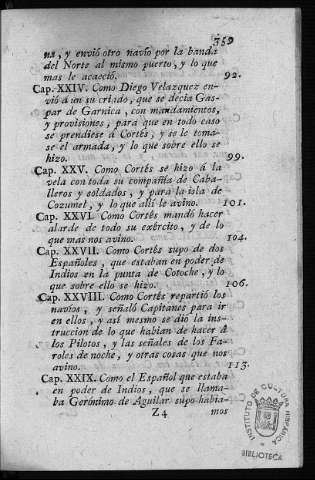 359
na, y envió otro navio por la banda
del Norte al mismo puerto, y lo que
mas le acaeció. 92.
Cap. XXIV. Como Diego Velazquez en-
vió á un su criado, que se decia Gas-
par de Garnica, con mandamientos,
y provisiones, para que en todo caso
se prendiese á Cortés, y se le toma-
se el armada, y lo que sobre ello se
hizo. 99.
Cap. XXV. Como Cortés se hizo á la
vela con toda su compañia de Caba-
lleros y soldados, y para la isla de
Cozumel, y lo que allí le avino. 101.
Cap. XXVI. Como Cortés mandó hacer
alarde de todo su exército, y de lo
que mas nos avino. 104.
Cap. XXVII. Como Cortés supo de dos
Españoles, que estaban en poder de
Indios en la punta de Cotoche, y lo
que sobre ello se hizo. 106.
Cap. XXVIII. Como Cortés repartió los
navios, y señaló Capitanes para ir
en ellos, y así mesmo se dió la ins-
truccion de lo que habian de hacer á
los Pilotos, y las señales de los Fa-
roles de noche, y otras cosas que nos
avino. 113.
Cap. XXIX. Como el Español que estaba
en poder de Indios, que se llama-
ba Gerónimo de Aguilar supo habia-
Z4 mos
INSTITUTO DE CULTURA HISPANICA
BIBLIOTECA